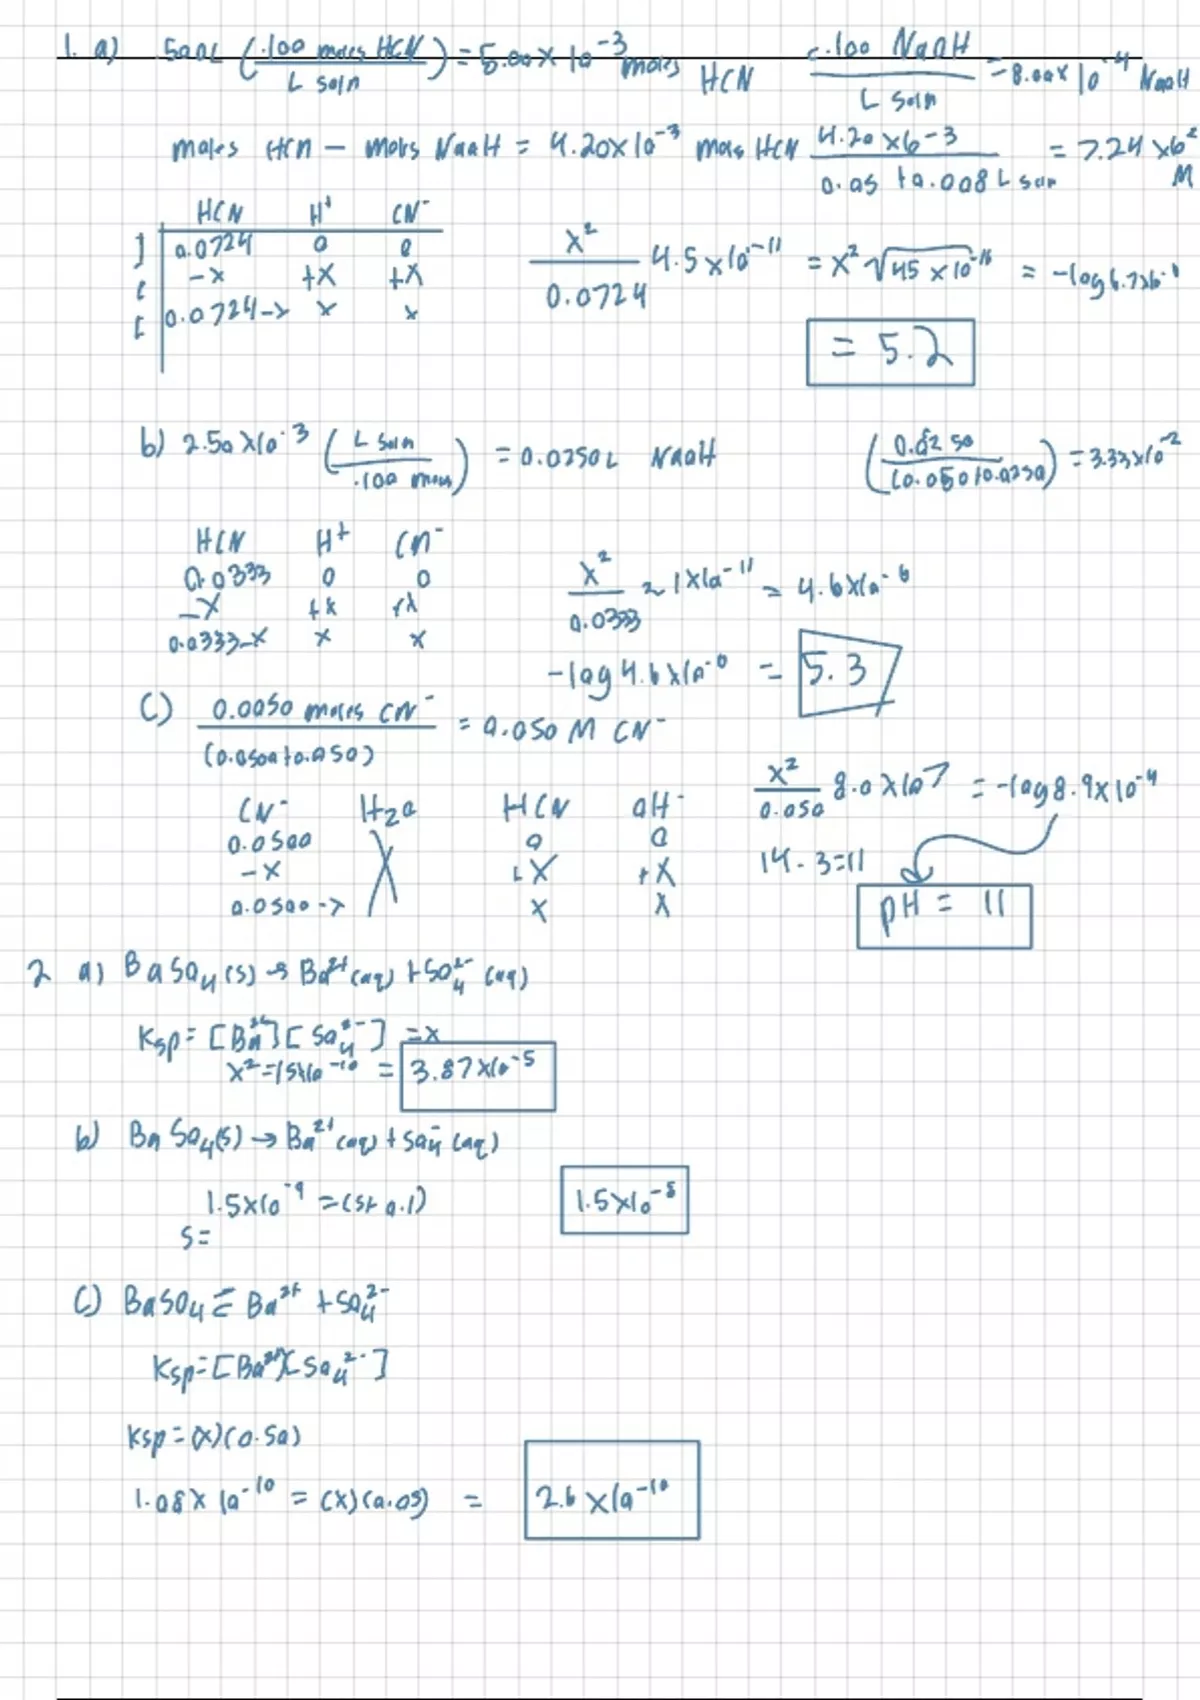 1. a) 50.0L (.100 moles HCN / L soln) = 5.00 x 10^-3 moles HCN .100 NaOH / L soln = 8.00 x 10^-4 NaOH
moles HCN - moles NaOH = 4.20x10^-3 moles HCN 4.20 x10^-3 / 0.05 + 0.008 L soln = 7.24 x10^-2 M
HCN H+ CN-
I 0.0724 0 0
C -x +x +x
E 0.0724-x x x
x^2 / 0.0724 4.5x10^-11 = x^2 = -log 6.7x10
= 5.2
b) 2.50 x10^-3 (L soln / .100 moles) = 0.0250L NaOH (0.0250 / (0.050+0.0250)) = 3.33x10^-2
HCN H+ CN-
0.0333 0 0
-x +x +x
0.0333-x x x
x^2 / 0.0333 ~ 1x10^-11 = 4.6x10^-6
-log 4.6x10 = 5.3
C) 0.0050 moles CN- / (0.0500+0.050) = 0.050 M CN-
CN- H2O HCN OH-
0.0500 0 0
-x +x +x
0.0500-x x x
x^2 / 0.050 8.0x10 = -log 8.9x10^-4
14-3=11
pH = 11
2 a) BaSO4(s) → Ba2+(aq) + SO4^2-(aq)
Ksp = [Ba2+][SO4^2-] = x
x^2 = 15x10^-10 = 3.87x10^-5
b) BaSO4(s) → Ba2+(aq) + SO4-(aq)
1.5x10^-9 = (s+0.1) 1.5x10^-8
S=
C) BaSO4 ⇌ Ba2+ + SO4^2-
Ksp = [Ba2+][SO4^2-]
Ksp = (x)(0.50)
1.08x10^-10 = (x)(0.05) = 2.6 x10^-10